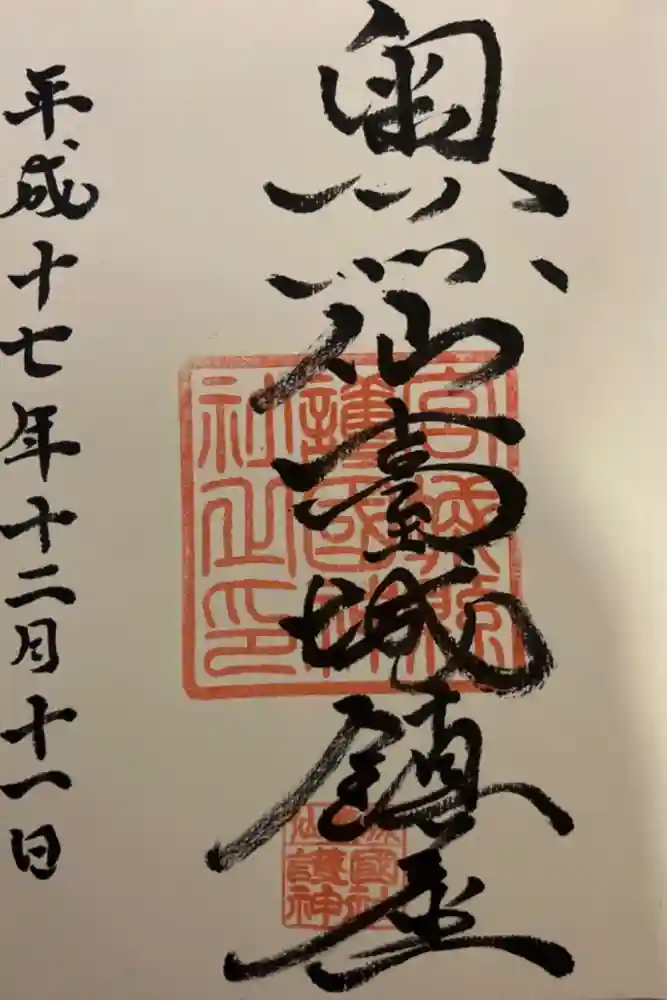 奥州仙臺城鎮座
平成十七年十二月十一日
宮城縣
護國神
社之印